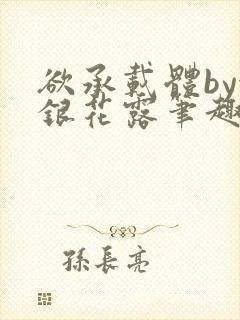 欲承載體by
銀花露筆趣
孫長亮